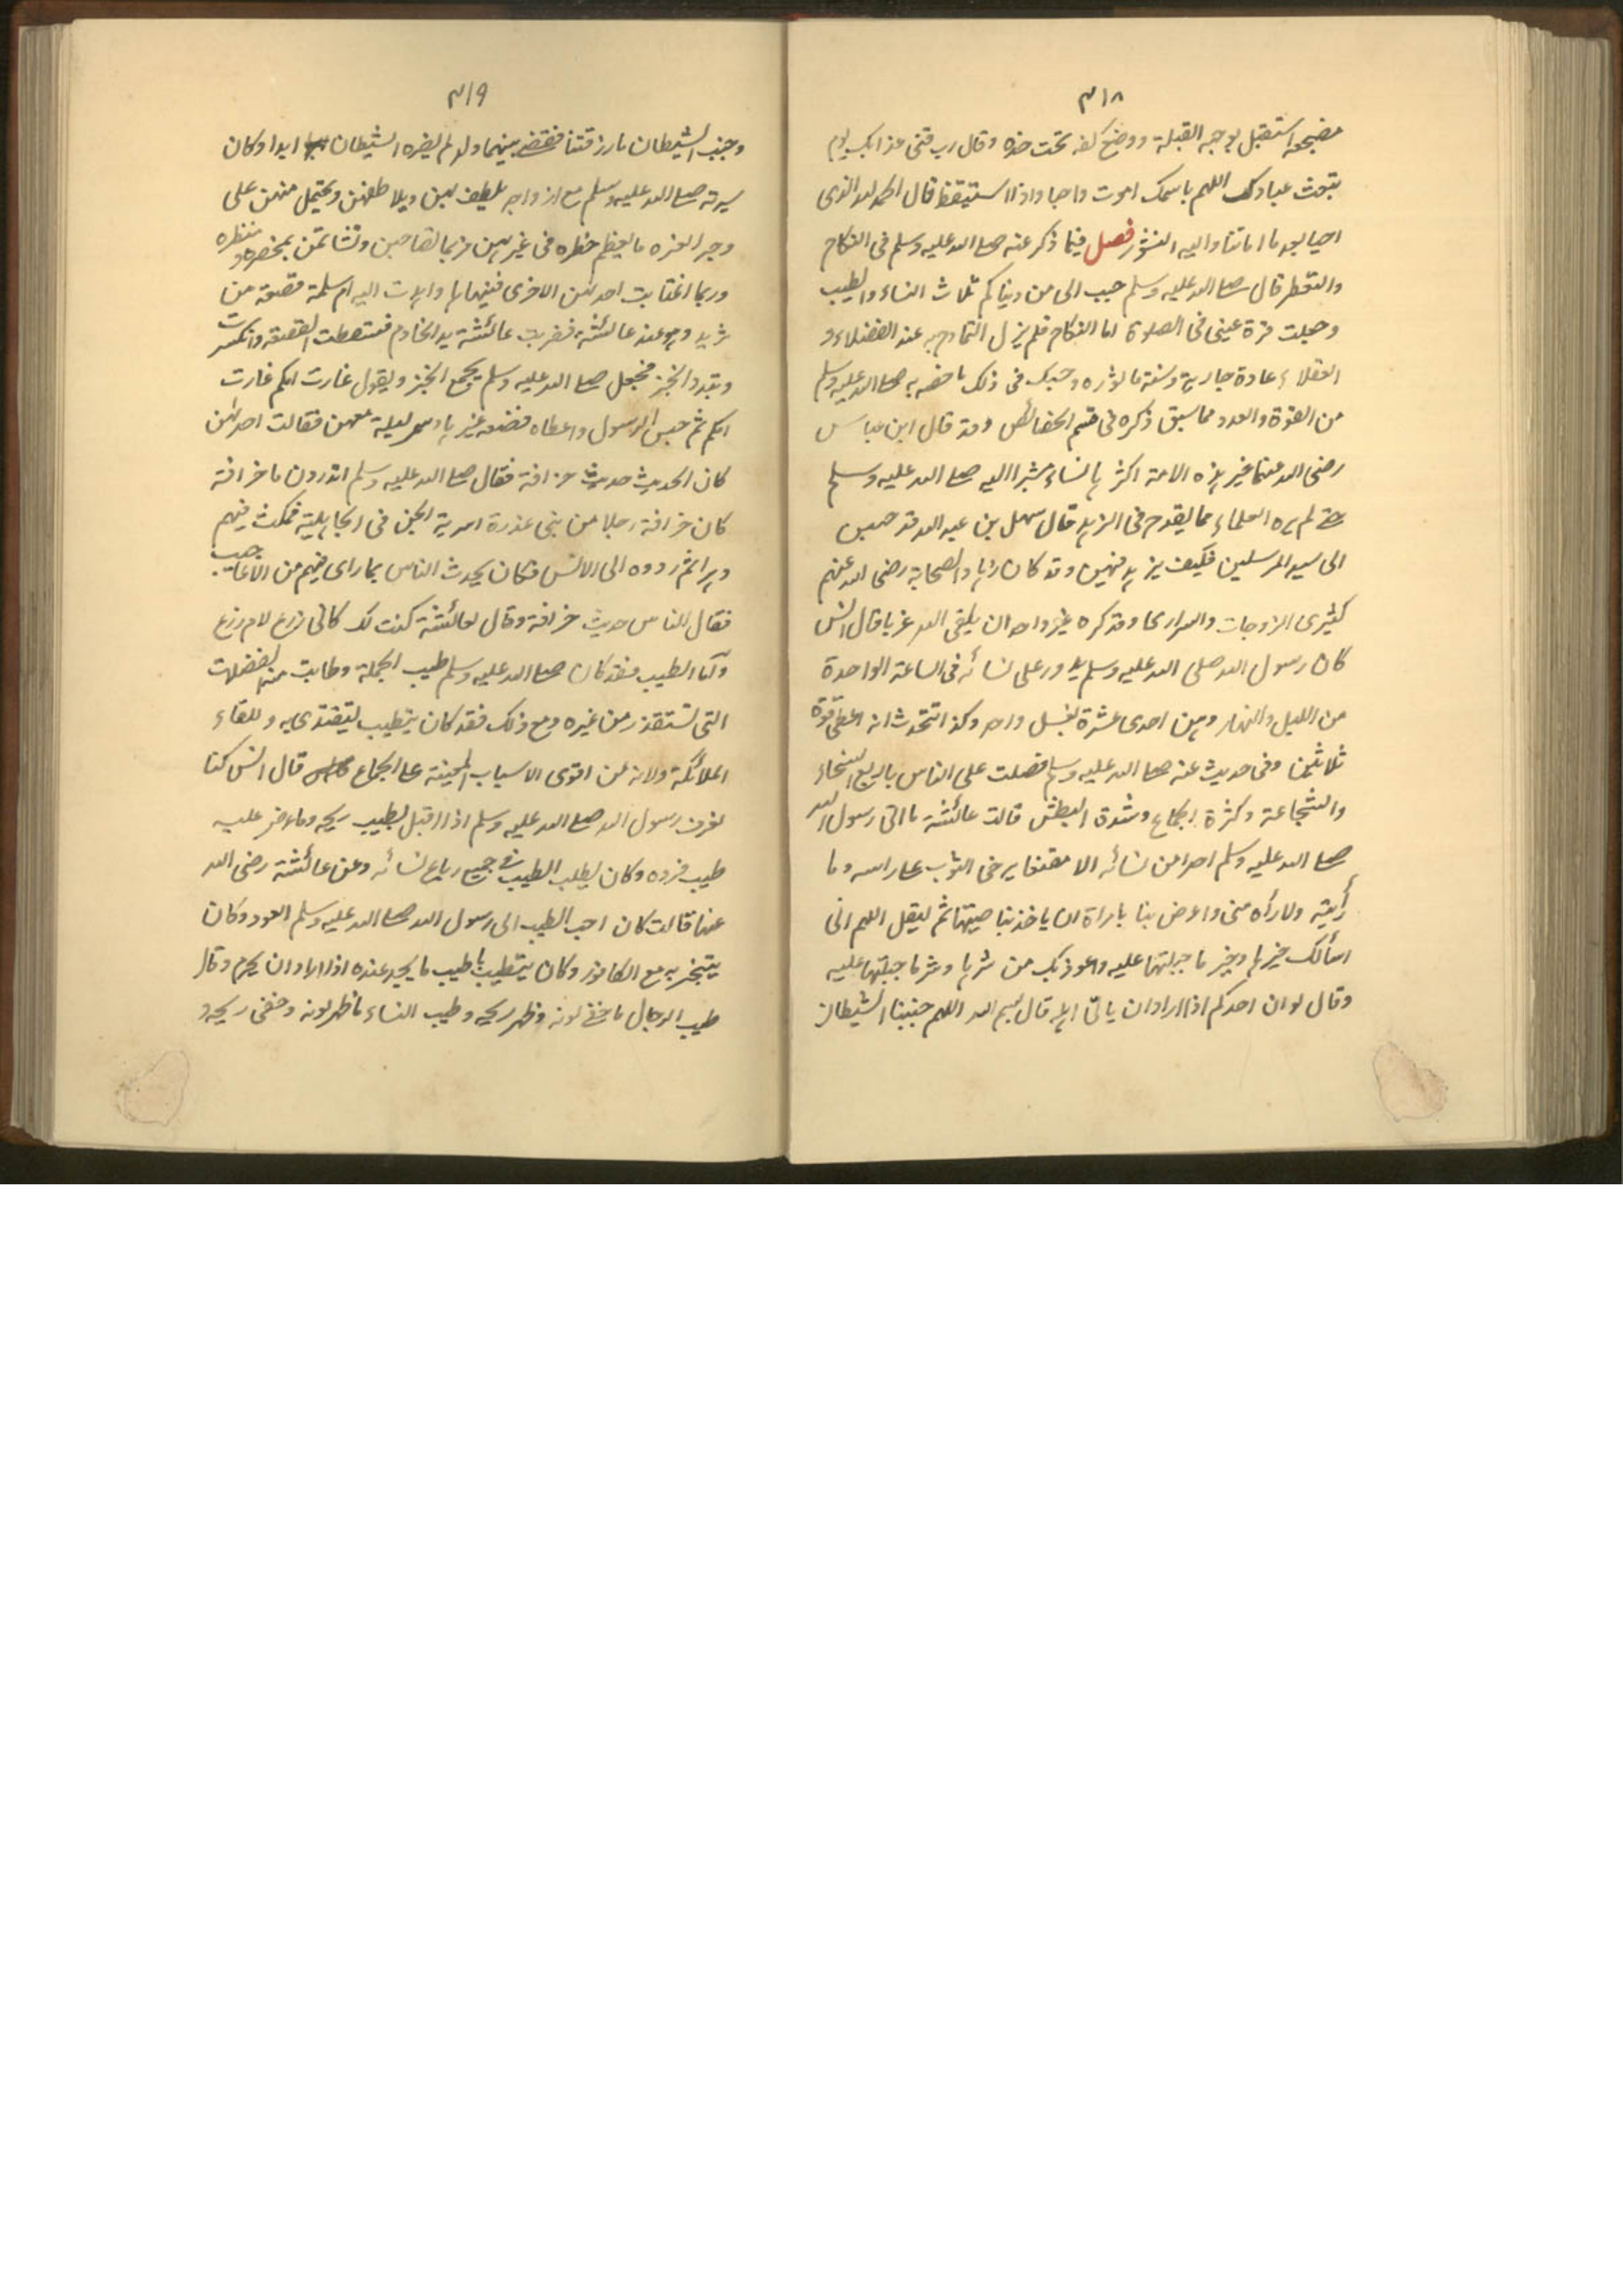 ٣١٨
مضجعه استقبل بوجهه القبلة ووضع كفه تحت خده وقال رب قنى عذابك يوم
تبعث عبادك اللهم باسمك اموت واحيا واذا استيقظ قال الحمد لله الذى
احيا بعد ما اماتنا واليه النشور فصل فيما ذكر عنه صلى الله عليه وسلم فى النكاح
والتعطر قال صلى الله عليه وسلم حبب الى من دنياكم ثلاث النساء والطيب
وجعلت قرة عينى فى الصلوة اما النكاح فلم يزل التمادح به عند الفضلاء و
العقلاء عادة جارية وسنة مأثوره وحسبك فى ذلك ما خصه به صلى الله عليه وسلم
من القوة والعدد مما سبق ذكره فى قسم الخصائص وقد قال ابن عباس
رضى الله عنهما خير هذه الامة اكثرها نساء مشيرا اليه صلى الله عليه وسلم
حتى لم يره العلماء مما يقدح فى الزهد قال سهل بن عبد الله قد حببن
الى سيد المرسلين فكيف يزهد فيهن وقد كان زهاد الصحابة رضى الله عنهم
كثيرى الزوجات والسرارى وقد كره غير واحد ان يلقى الله عزبا قال انس
كان رسول الله صلى الله عليه وسلم يدور على نسائه فى الساعة الواحدة
من الليل والنهار وهن احدى عشرة بغسل واحد وكنا نتحدث انه اعطى قوة
ثلاثين وفى حديث عنه صلى الله عليه وسلم فضلت على الناس باربع السخاء
والشجاعة وكثرة الجماع وشدة البطش قالت عائشة ما اتى رسول الله
صلى الله عليه وسلم احدا من نسائه الا مقنعا يرخى الثوب على راسه وما
رأيته ولا رأه منى واعرض بنا بامراة ان ياخذ بناصيتها ثم ليقل اللهم انى
اسألك خيرها وخير ما جبلتها عليه واعوذ بك من شرها وشر ما جبلتها عليه
وقال لو ان احدكم اذا اراد ان ياتى اهله قال بسم الله اللهم جنبنا الشيطان
٣١٩
وجنب الشيطان ما رزقتنا فقضى بينهما ولد لم يضره الشيطان ابدا وكان
سيرته صلى الله عليه وسلم مع ازواجه يلطف بهن ويلاطفهن ويحتمل منهن على
وجه العزه ما يعظم خطره فى غيرهن فربما تصاحبن وتشاتمن بمحضره ومنظره
وربما اغتابت احدهن الاخرى فينهاها واهدت اليه ام سلمة قصعة من
ثريد وهو عند عائشة فضربت عائشة يد الخادم فسقطت القصعة وانكسرت
وتبدد الخبز فجعل صلى الله عليه وسلم يجمع الخبز ويقول غارت امكم غارت
امكم ثم حبس الرسول واعطاه قصعة غيرها وسمر ليلة معهن فقالت احدهن
كان الحديث حديث خرافة فقال صلى الله عليه وسلم اتدرون ما خرافة
كان خرافة رجلا من بنى عذرة اسرته الجن فى الجاهلية فمكث فيهم
دهرا ثم ردوه الى الانس فكان يحدث الناس بما راى فيهم من الاعاجيب
فقال الناس حديث خرافة وقال لعائشة كنت لك كابى زرع لام زرع
وأما الطيب فقد كان صلى الله عليه وسلم طيب الجملة وطابت منه الفضلات
التى تستقذر من غيره ومع ذلك فقد كان يتطيب ليقتدى به و للقاء
الملائكة ولانه من اقوى الاسباب المعينة على الجماع قال انس كنا
نعرف رسول الله صلى الله عليه وسلم اذا اقبل بطيب ريحه وما عرض عليه
طيب فرده وكان يطلب الطيب فى جميع رباع نسائه وعن عائشة رضى الله
عنها قالت كان احب الطيب الى رسول الله صلى الله عليه وسلم العود وكان
يتبخر به مع الكافور وكان يتطيب باطيب ما يجد عنده اذا اراد ان يحرم وقال
طيب الرجال ما خفى لونه وظهر ريحه وطيب النساء ما ظهر لونه وخفى ريحه و